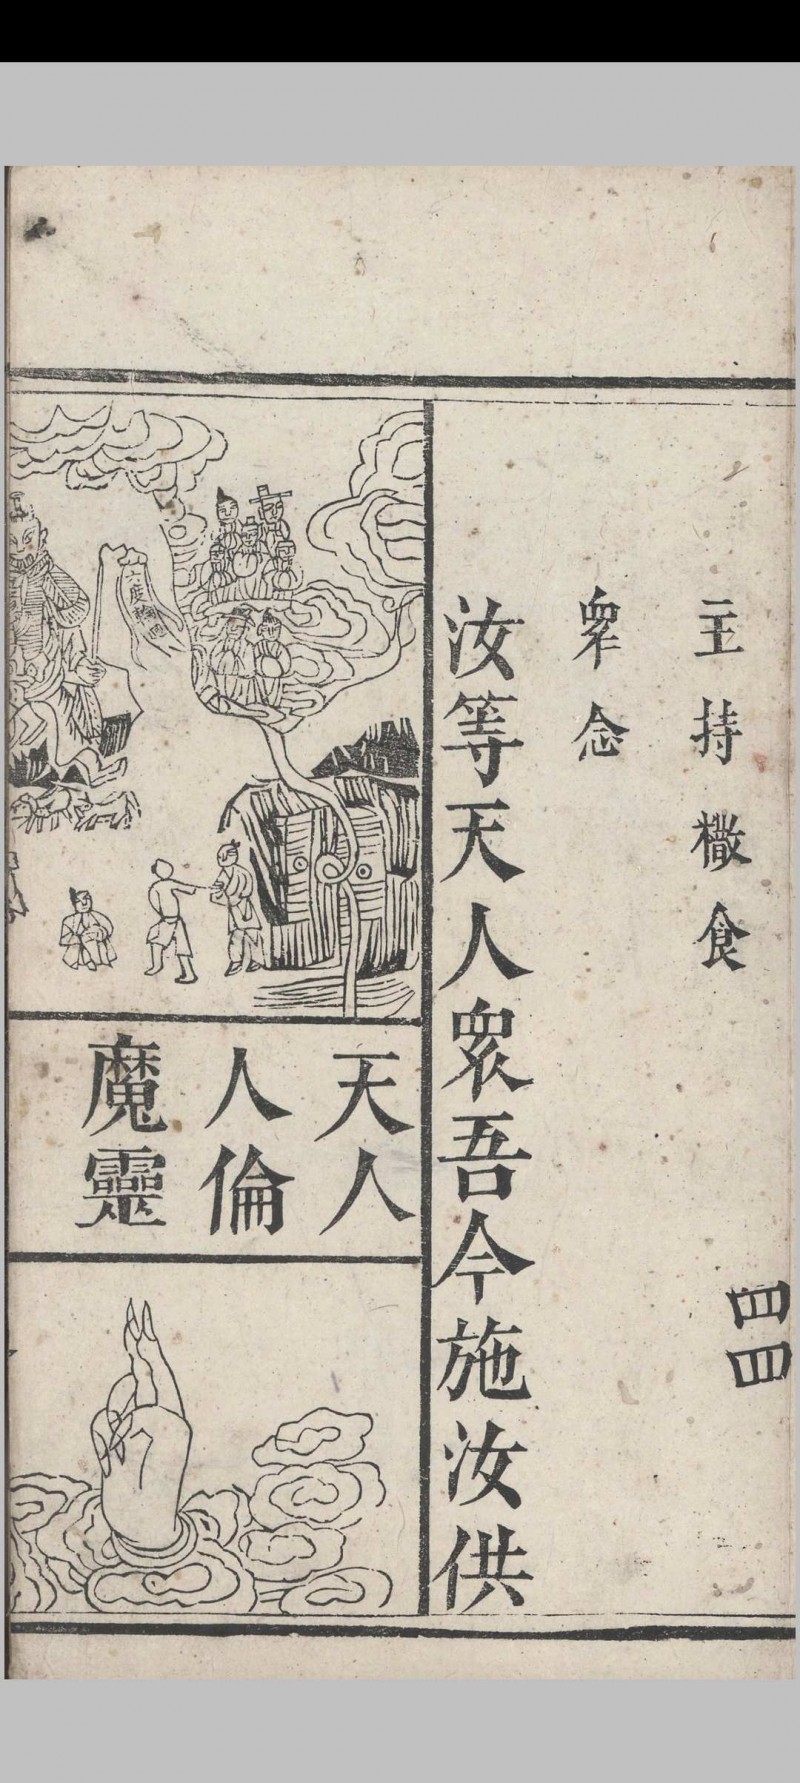 主持橵食
眾念
汝等天人衆吾今施汝供
六度輪迴
天人
人倫
魔靈